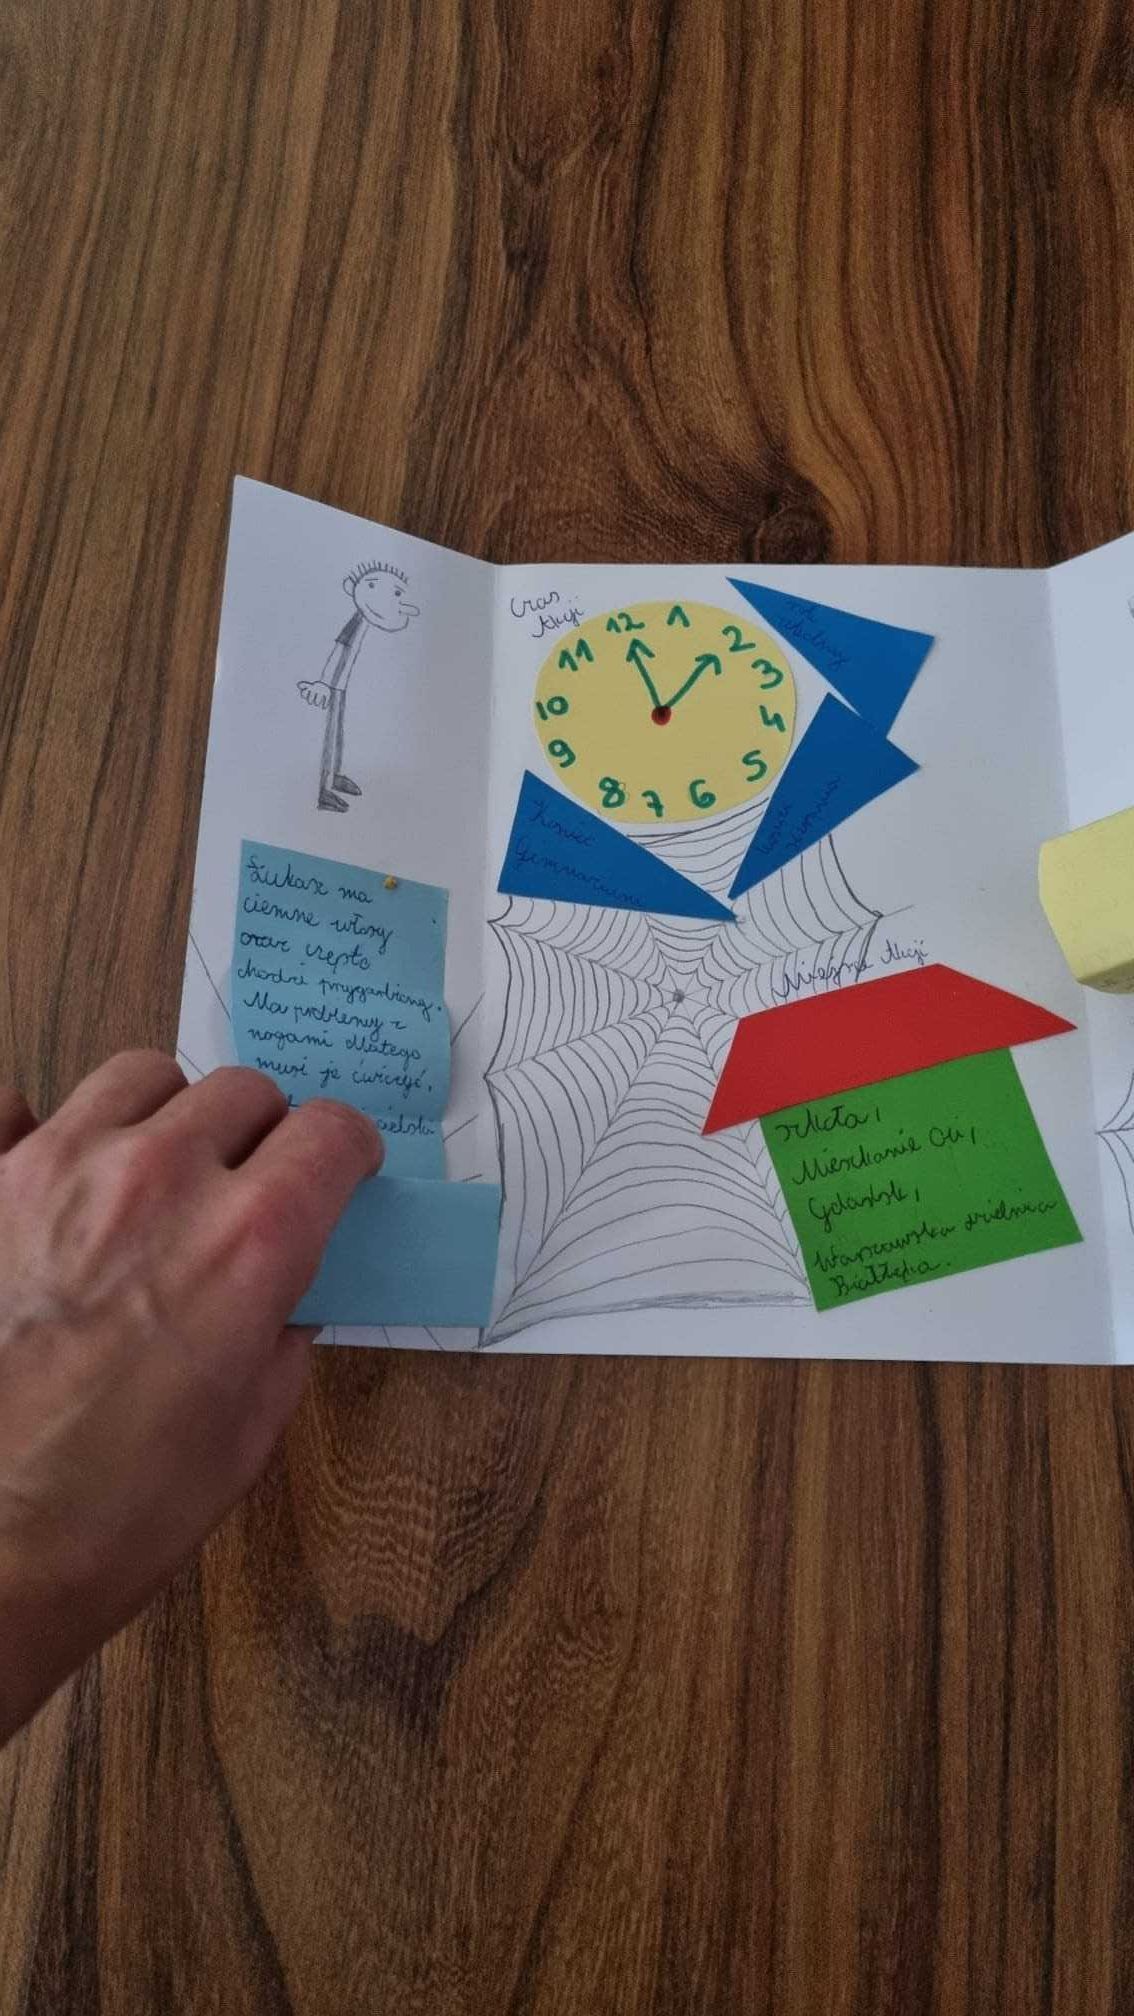 Łukasz ma
ciemne włosy
oraz często
chodzi przygarbiony.
Ma problemy z
nogami dlatego
musi je ćwiczyć.
Czas
Akcji
12 1 2 3 4 5 6 7 8 9 10 11
rok
szkolny
Koniec
Gimnazjum
koniec
Miejsce Akcji
szkoła,
Mieszkanie Oli,
Gdańsk,
Warszawska dzielnica
Białłęka.